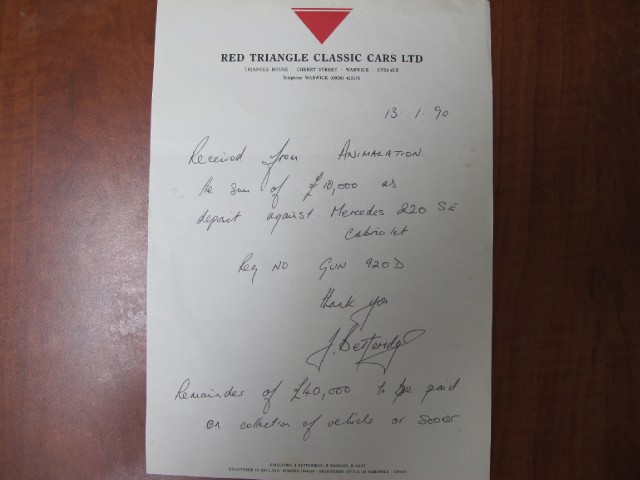 RED TRIANGLE CLASSIC CARS LTD
TRIANGLE HOUSE · CHERRY STREET · WARWICK ·
Telephone WARWICK
13. 1. 90
Received from ANIMALATION
the sum of £18,000 as
deposit against Mercedes 220 SE
Cabriolet
Reg NO GUN 920D
thank you
J. Betteridge
Remainder of £40,000 to be paid
on collection of vehicle or sooner